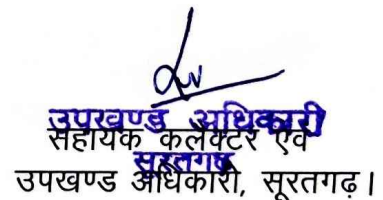 उपखण्ड अधिकारी
सहायक कलेक्टर एवं
सूरतगढ़
उपखण्ड अधिकारी, सूरतगढ़।